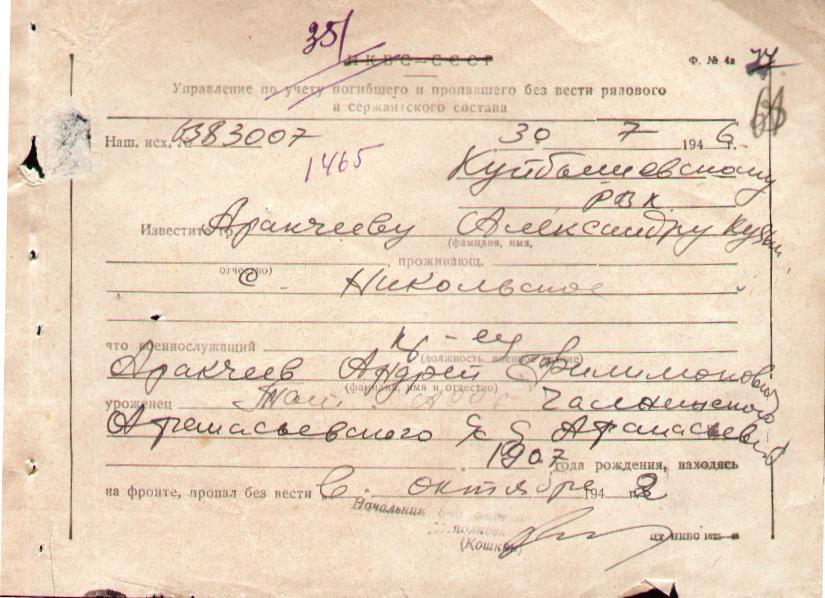 35/
НКВС-СССР
Ф. № 4а
Управление по учету погибшего и пропавшего без вести рядового
и сержантского состава
Наш. исх. № 6383007 30 7 1946 г.
1465
Куйбышевскому
РВК
Известите гр. Аракчееву Александру Кузьм.
(фамилия, имя,
отчество) , проживающ.
с. Никольское
что военнослужащий кр-ец
(должность военное звание)
Аракчеев Андрей Филимонович
(фамилия, имя и отчество)
уроженец Тат. АССР Челнинского
1907 года рождения, находясь
на фронте, пропал без вести в октябре 1942
Начальник 6-го отдела
(Кошкин)